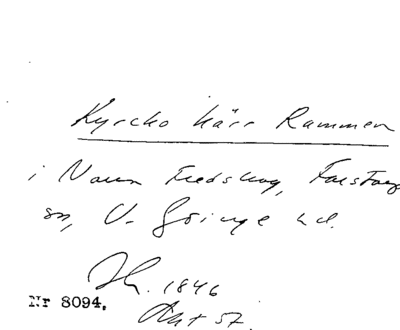 Kyrcko Kärr Rammen
i Norra Fredskog, Farstorp
sn, V. Göinge hd.
Jh. 1846
Nr 8094. Akt 57.